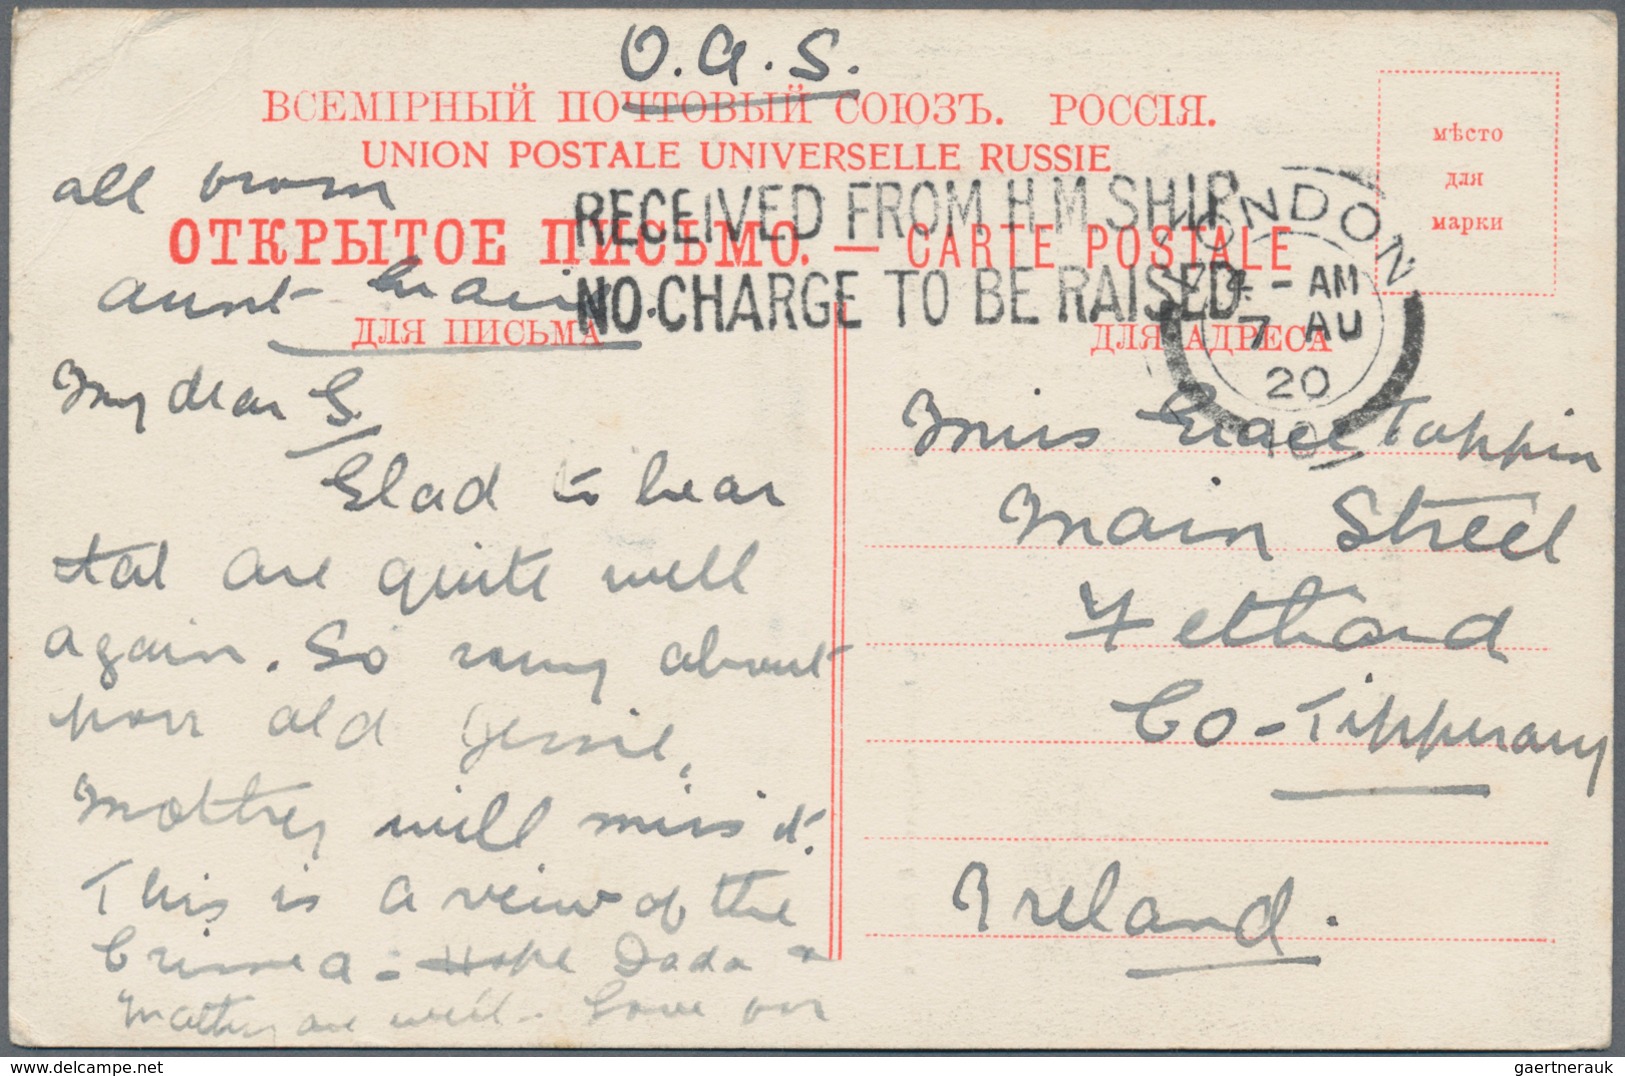 O.A.S.
ВСЕМІРНЫЙ ПОЧТОВЫЙ СОЮЗЪ. РОССІЯ.
UNION POSTALE UNIVERSELLE RUSSIE
ОТКРЫТОЕ ПИСЬМО. — CARTE POSTALE
ДЛЯ ПИСЬМА
ДЛЯ АДРЕСА
мѣсто
для
марки
RECEIVED FROM H.M. SHIP
NO CHARGE TO BE RAISED
LONDON
4 - AM
7 AU
20
all from
aunt
My dear G.
Glad to hear
tat are quite well
again. So sorry about
poor old Jessie,
Mother will miss it.
This is a view of the
Crimea - Hope Dada &
Mother are well - Love
Miss Grace Tappin
Main Street
Fethard
Co-Tipperary
Ireland.
gaertnerauk